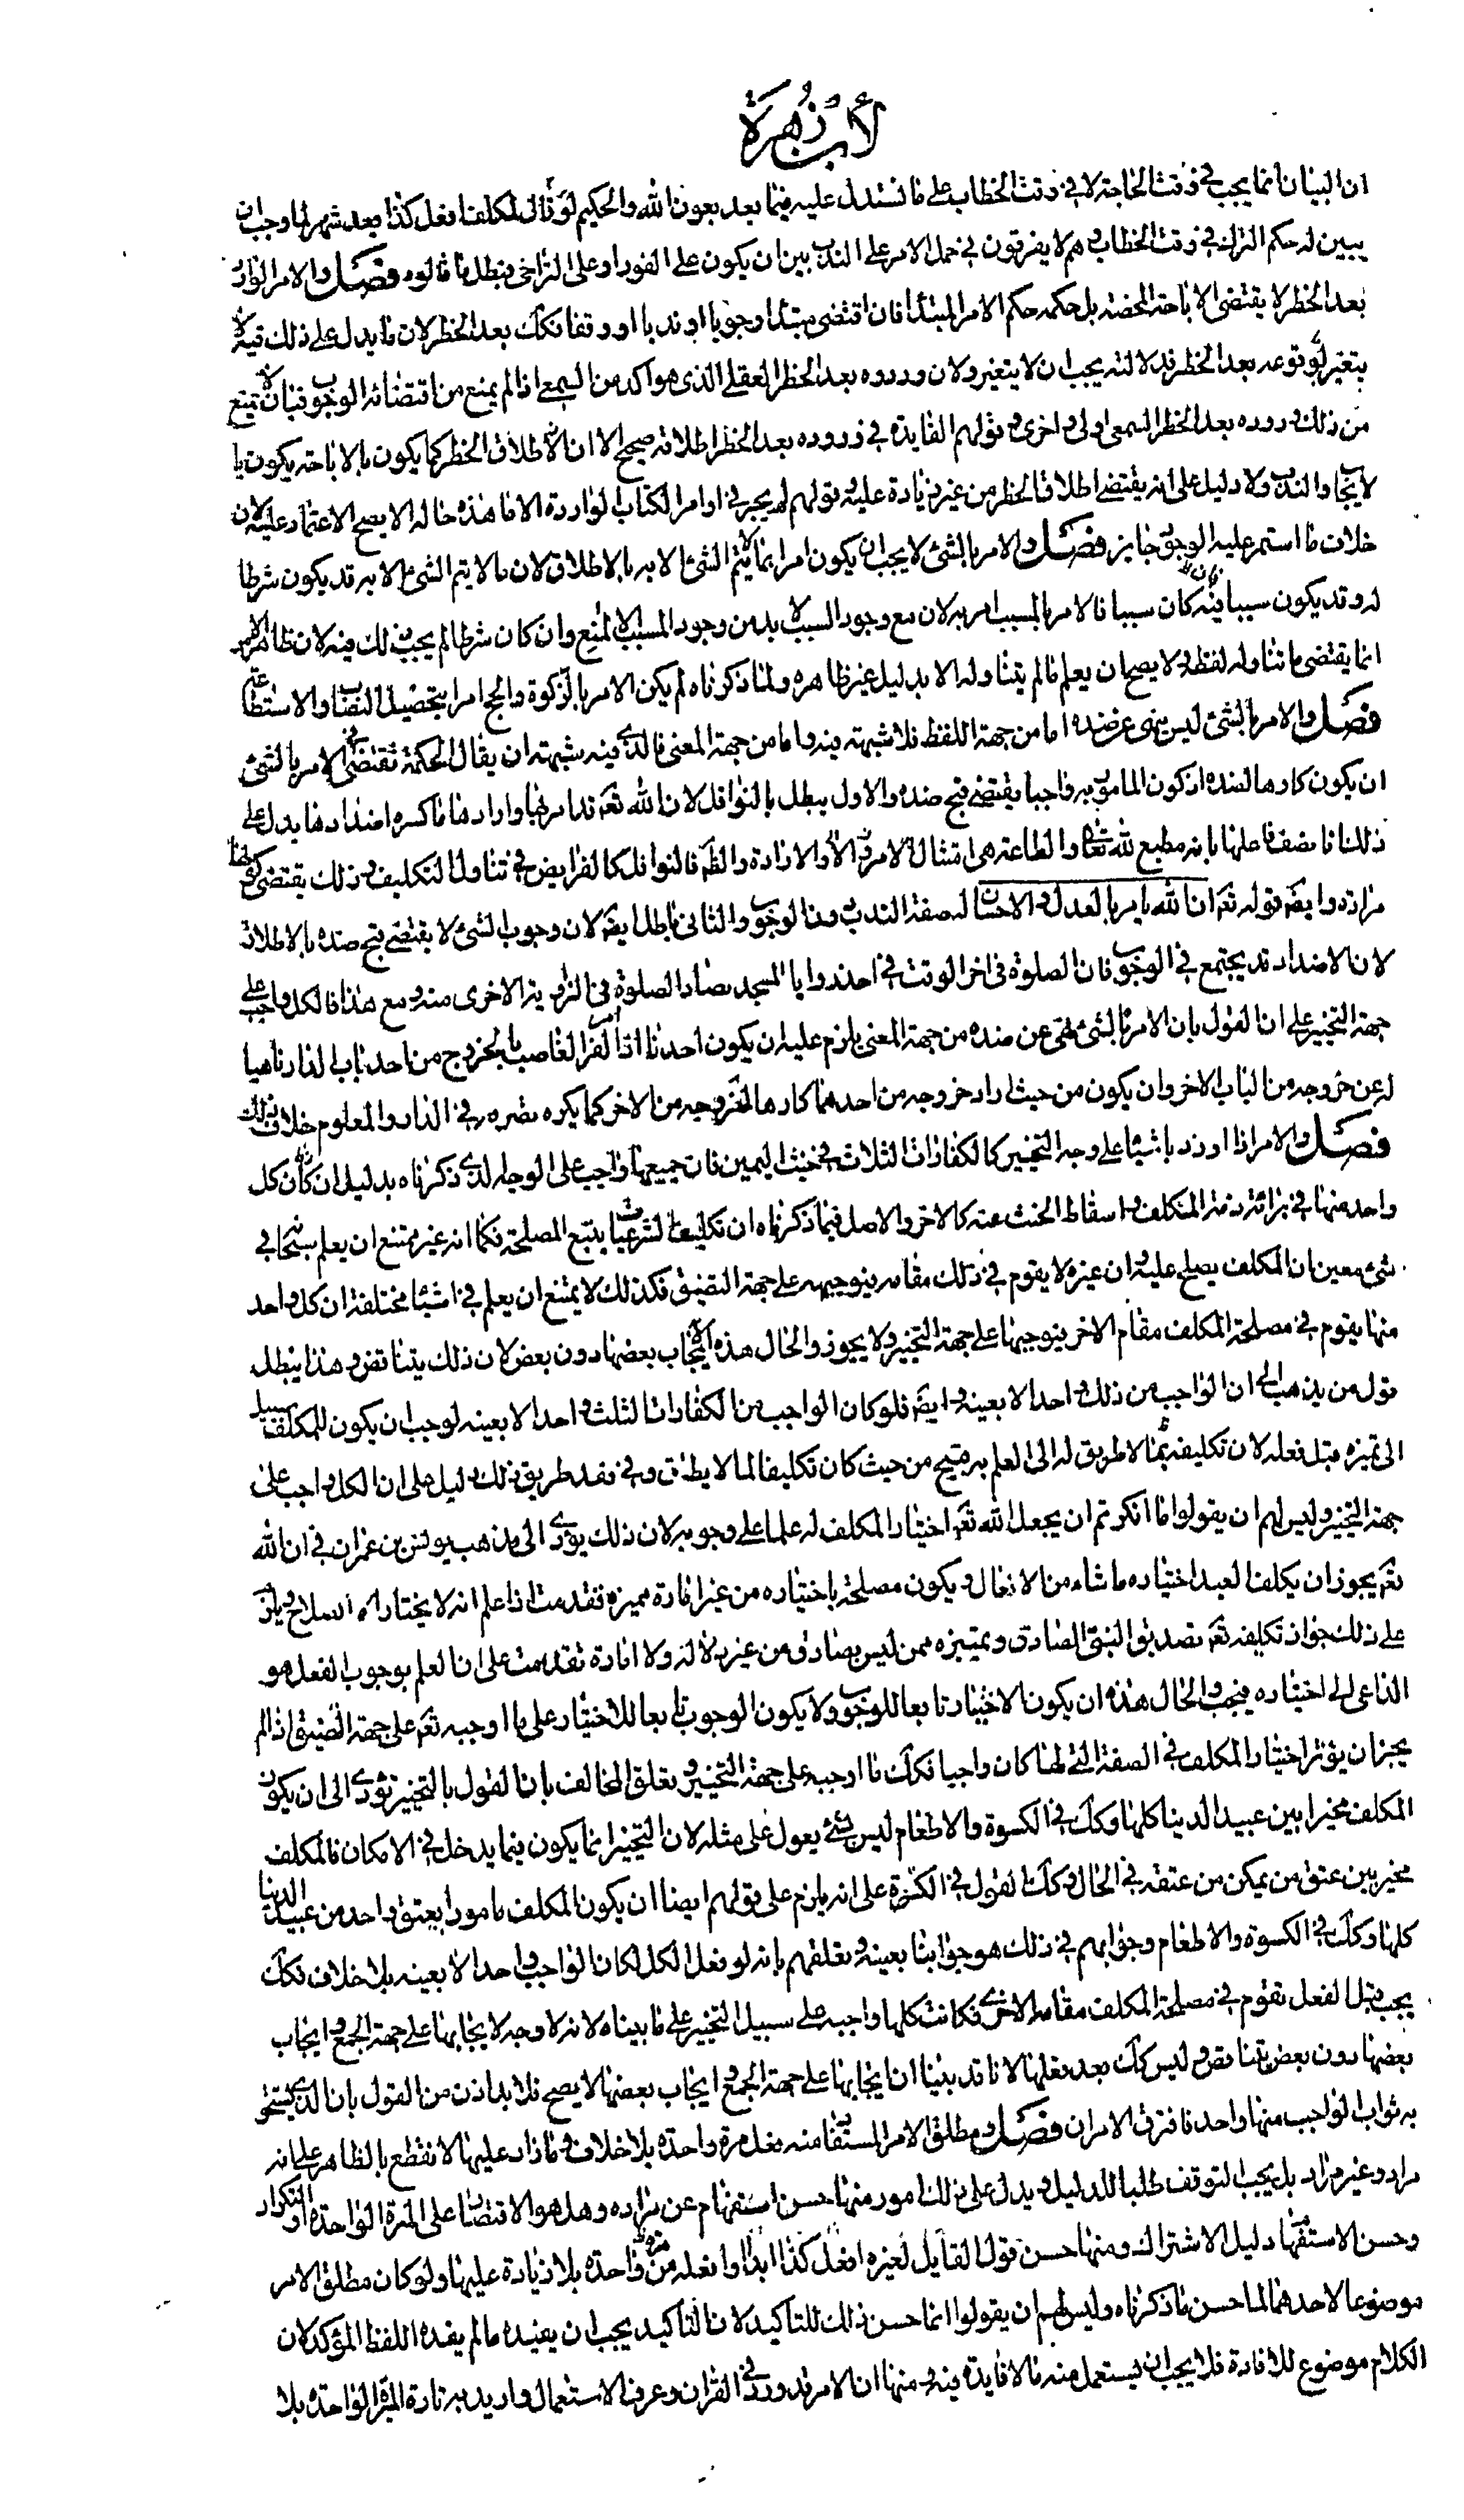 لأبن زهرة
ان البيان انما يجب في وقت الحاجة لا في وقت الخطاب على ما نستدل عليه فيما بعد بعون الله والحكيم لو قال لمكلف افعل كذا بعد شهر لما وجب ان
يبين له حكم الترك في وقت الخطاب وهم لا يفرقون في حمل الامر على الندب بين ان يكون على الفور او على التراخي فبطل ما قالوه فصل والامر الوارد
بعد الحظر لا يقتضى الاباحة المحضة بل حكمه حكم الامر المبتدأ فان اقتضى مبتدأ وجوبا او ندبا او وقفا فكك بعد الحظر لان ما يدل على ذلك قبل لا
يتغير بوقوعه بعد الحظر فدلالته يجب ان لا يتغير ولان وروده بعد الحظر العقلي الذى هو اكد من السمعى اذا لم يمنع من اقتضائه الوجوب فبان لا يمنع
من ذلك وروده بعد الحظر السمعى اولى واحرى وقولهم الفايدة في وروده بعد الحظر اطلاقه صحيح الا ان الاطلاق الحظر كما يكون بالاباحة يكون با
لايجاب والندب ولا دليل على انه يقتضى اطلاق الحظر من غير زيادة عليه وقولهم لم يجر في اوامر الكتاب الواردة الا ما هذه حاله لا يصح الاعتماد عليه لان
خلاف ما استمر عليه الوجود جايز فصل والامر بالشئ لا يجب ان يكون امرا بما لا يتم الشئ الا به بالاطلاق لان ما لا يتم الشئ الا به قد يكون شرطا
له وقد يكون سببا فيه فان كان سببا فالامر بالمسبب امر به لان مع وجود السبب لا بد من وجود المسبب الا لمنع وان كان شرطا لم يجب ذلك فيه لان ظاهر الامر
انما يقتضى ما تناوله لفظه ولا يصح ان يعلم ما لم يتناوله الا بدليل غير ظاهره ولما ذكرناه لم يكن الامر بالزكوة والحج امرا بتحصيل النصاب والاستطاعة
فصل والامر بالشئ ليس بنهى عن ضده اما من جهة اللفظ فلا شبهة فيه واما من جهة المعنى فالذى فيه شبهة ان يقال الحكمة تقتضى في الامر بالشئ
ان يكون كارها لضده اذ كون المامور به واجبا يقتضى قبح ضده والاول يبطل بالنوافل لان الله تعالى قد امر بها وارادها وما كره اضدادها يدل على
ذلك ما نصف فاعلها بانه مطيع لله تعالى والطاعة هى امتثال الامر والارادة والظاهر فالنوافل كالفرايض في تناول التكليف وذلك يقتضى كونها
مرادة وايضا قوله تعالى ان الله يامر بالعدل والاحسان له صفة الندب ومنا لوجوب والثانى باطل ايضا لان وجوب الشئ لا يقتضى قبح ضده بالاطلاق
لان الاضداد قد يجتمع في الوجوب فان الصلوة في اخر الوقت في احد زوايا المسجد يضاد الصلوة في الزاوية الاخرى منه ومع هذا فالكل واجب على
جهة التخيير على ان القول بان الامر بالشئ نهى عن ضده من جهة المعنى يلزم عليه ان يكون احدنا اذا امر الغاصب بالخروج من احد بابى الدار ناهيا
له عن خروجه من الباب الاخر وان يكون من حيث اراد خروجه من احدهما كارها لخروجه من الاخر كما يكره تصرفه في الدار والمعلوم خلاف ذلك
فصل والامر اذا ورد باشياء على وجه التخيير كالكفارات الثلاث في حنث اليمين فان جميعها واجب على الوجه الذى ذكرناه بدليل ان كل
واحد منها في براءة ذمة المكلف واسقاط الحنث عنه كالاخر والاصل فيما ذكرناه ان تكليف الشرعيات يتبع المصلحة فكما انه غير ممتنع ان يعلم سبحانه في
شئ معين ان المكلف يصلح عليه وان غيره لا يقوم في ذلك مقامه فيوجبه على جهة التضيق فكذلك لا يمتنع ان يعلم في اشياء مختلفة ان كل واحد
منها يقوم في مصلحة المكلف مقام الاخر فيوجبها على جهة التخيير ولا يجوز والحال هذه ايجاب بعضها دون بعض لان ذلك يتناقض وهذا يبطل
قول من يذهب الى ان الواجب من ذلك واحد لا بعينه وايضا فلو كان الواجب من الكفارات الثلث واحدا لا بعينه لوجب ان يكون للمكلف سبيل
الى تميزه قبل فعله لان تكليفه بما لا طريق له الى العلم به قبيح من حيث كان تكليفا لما لا يطاق وفي فقد طريق ذلك دليل على ان الكل واجب على
جهة التخيير وليس لهم ان يقولوا ما انكرتم ان يجعل الله تعالى اختيار المكلف له علما على وجوبه لان ذلك يؤدى الى مذهب يونس بن عمران في ان الله
تعالى يجوز ان يكلف العبد اختياره ما شاء من الافعال ويكون مصلحة باختياره من غير امارة مميزة فقدمت اذا علم انه لا يختار الا الصلاح ويلزم
على ذلك جواز تكليفه تعالى تصديق النبى الصادق وتميزه ممن ليس بصادق من غير دلالة ولا امارة تقدمت على ان العلم بوجوب الفعل هو
الداعى الى اختياره فيجب والحال هذه ان يكون الاختيار تابعا للوجوب ولا يكون الوجوب تابعا للاختيار على ما اوجبه تعالى على جهة التضيق اذا لم
يجز ان يؤثر اختيار المكلف في الصفة التى لها كان واجبا فكك ما اوجبه على جهة التخيير وتعلق المخالف بان القول بالتخيير يؤدى الى ان يكون
المكلف مخيرا بين عبيد الدنيا كلها وكك في الكسوة والاطعام ليس بشئ يعول على مثله لان التخيير انما يكون فيما يدخل في الامكان فالمكلف
مخير بين عتق من يمكن من عتقه في الحال وكك القول في الكسوة على انه يلزم على قولهم ايضا ان يكون المكلف مامورا بعتق واحد من عبيد الدنيا
كلها وكك في الكسوة والاطعام وجوابهم في ذلك هو جوابنا بعينه وتعلقهم بانه لو فعل الكل لكان الواجب واحدا لا بعينه بلا خلاف فكك
يجب قبل الفعل تقوم في مصلحة المكلف مقام الاخرى فكانت كلها واجبة على سبيل التخيير على ما بيناه لانه لا وجه لايجابها على جهة الجمع وايجاب
بعضها دون بعض يتناقض وليس كك بعد فعلها لانا قد بينا ان ايجابها على جهة الجمع وايجاب بعضها لا يصح فلا بد اذن من القول بان الذى يستحق
به ثواب الواجب منها واحد فافترق الامران فصل ومطلق الامر المستفاد منه فعل مرة واحدة بلا خلاف وما زاد عليها لا نقطع بالظاهر على انه
مراد وغير مراد بل يجب التوقف طلبا للدليل ويدل على ذلك امور منها حسن استفهام عن مراده وهل هو الاقتصار على المرة الواحدة او التكرار
وحسن الاستفهام دليل الاشتراك ومنها حسن قول القايل لغيره افعل كذا ابدا او افعله مرة واحدة بلا زيادة عليها ولو كان مطلق الامر
موضوعا لاحدهما لما حسن ما ذكرناه وليس لهم ان يقولوا انما حسن ذلك للتاكيد لان التاكيد يجب ان يفيد ما لم يفده اللفظ المؤكد لان
الكلام موضوع للافادة فلا يجب ان يستعمل منه ما لا فايدة فيه ومنها ان الامر قد ورد في القران وعرف الاستعمال واريد به تارة المرة الواحدة بلا